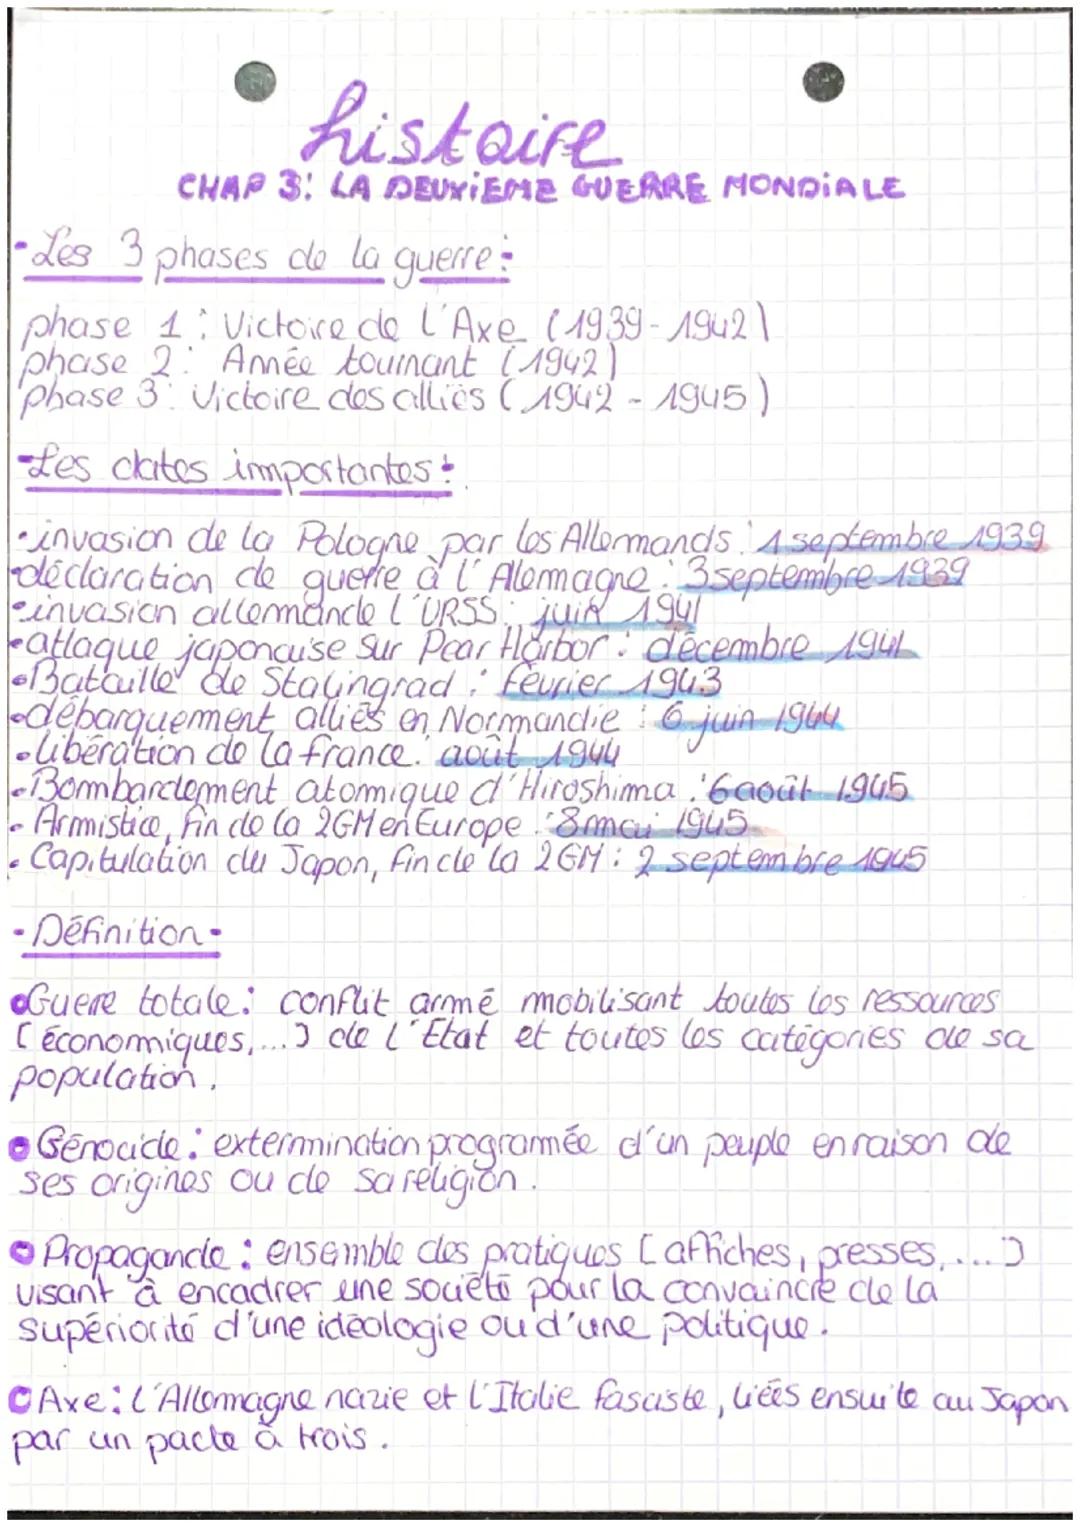 histoire
CHAP 3: LA DEUXIEME GUERRE MONDIALE
- Les 3 phases de la guerre:
phase 1: Victoire de l'Axe (1939-1942)
phase 2: Année tournant (1942)
phase 3: Victoire des alliés (1942-1945)
- Les dates importantes:
• invasion de la Pologne par les Allemands: 1 septembre 1939
• déclaration de guerre à l'Allemagne: 3 septembre 1939
• invasion allemande l'URSS: juin 1941
• attaque japonaise sur Pear Harbor: décembre 1941
• Bataille de Stalingrad: février 1943
• débarquement alliés en Normandie: 6 juin 1944
• libération de la france: août 1944
• Bombardement atomique d'Hiroshima: 6 août 1945
• Armistice, fin de la 2GM en Europe: 8 mai 1945
• Capitulation du Japon, fin de la 2GM: 2 septembre 1945
- Définition -
• Guerre totale: conflit armé mobilisant toutes les ressources
[économiques,...] de l'Etat et toutes les catégories de sa
population.
• Génocide: extermination programmée d'un peuple en raison de
ses origines ou de sa religion.
• Propagande: ensemble des pratiques [affiches, presses,....]
visant à encadrer une société pour la convaincre de la
supériorité d'une idéologie ou d'une politique.
• Axe: l'Allemagne nazie et l'Italie fasciste, liées ensuite au Japon
par un pacte à trois.